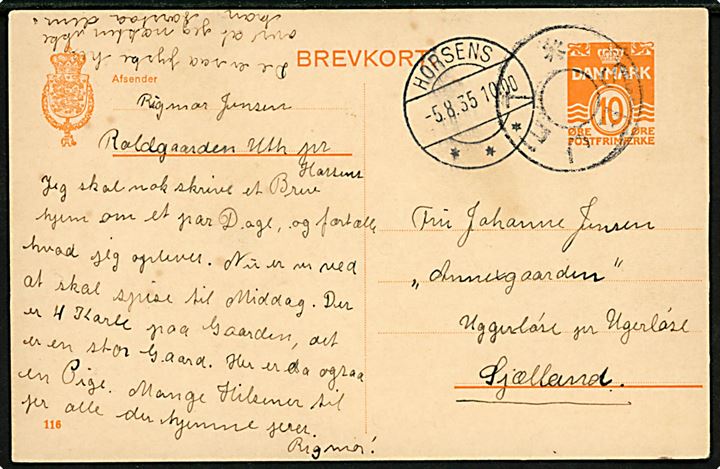 BREVKORT
Afsender
Rigmor Jensen
Roldgaarden Uth pr
Horsens
Jeg skal nok skrive et Brev
hjem om et par Dage, og fortælle
hvad jeg oplever. Nu er vi ved
at skal spise til Middag. Der
er 4 Karle paa Gaarden, det
er en stor Gaard. Her er da ogsaa
en Pige. Mange Hilsener til
jer alle der hjemme fra.
Rigmor!
116
De er saa jyske her
over at jeg næsten ikke
kan forstaa dem.
HORSENS
-5.8.35 10.00
DANMARK
10
ØRE ØRE
POSTFRIMÆRKE
Fru Johanne Jensen
„Annexgaarden"
Uggerløse pr Ugerløse
Sjælland.